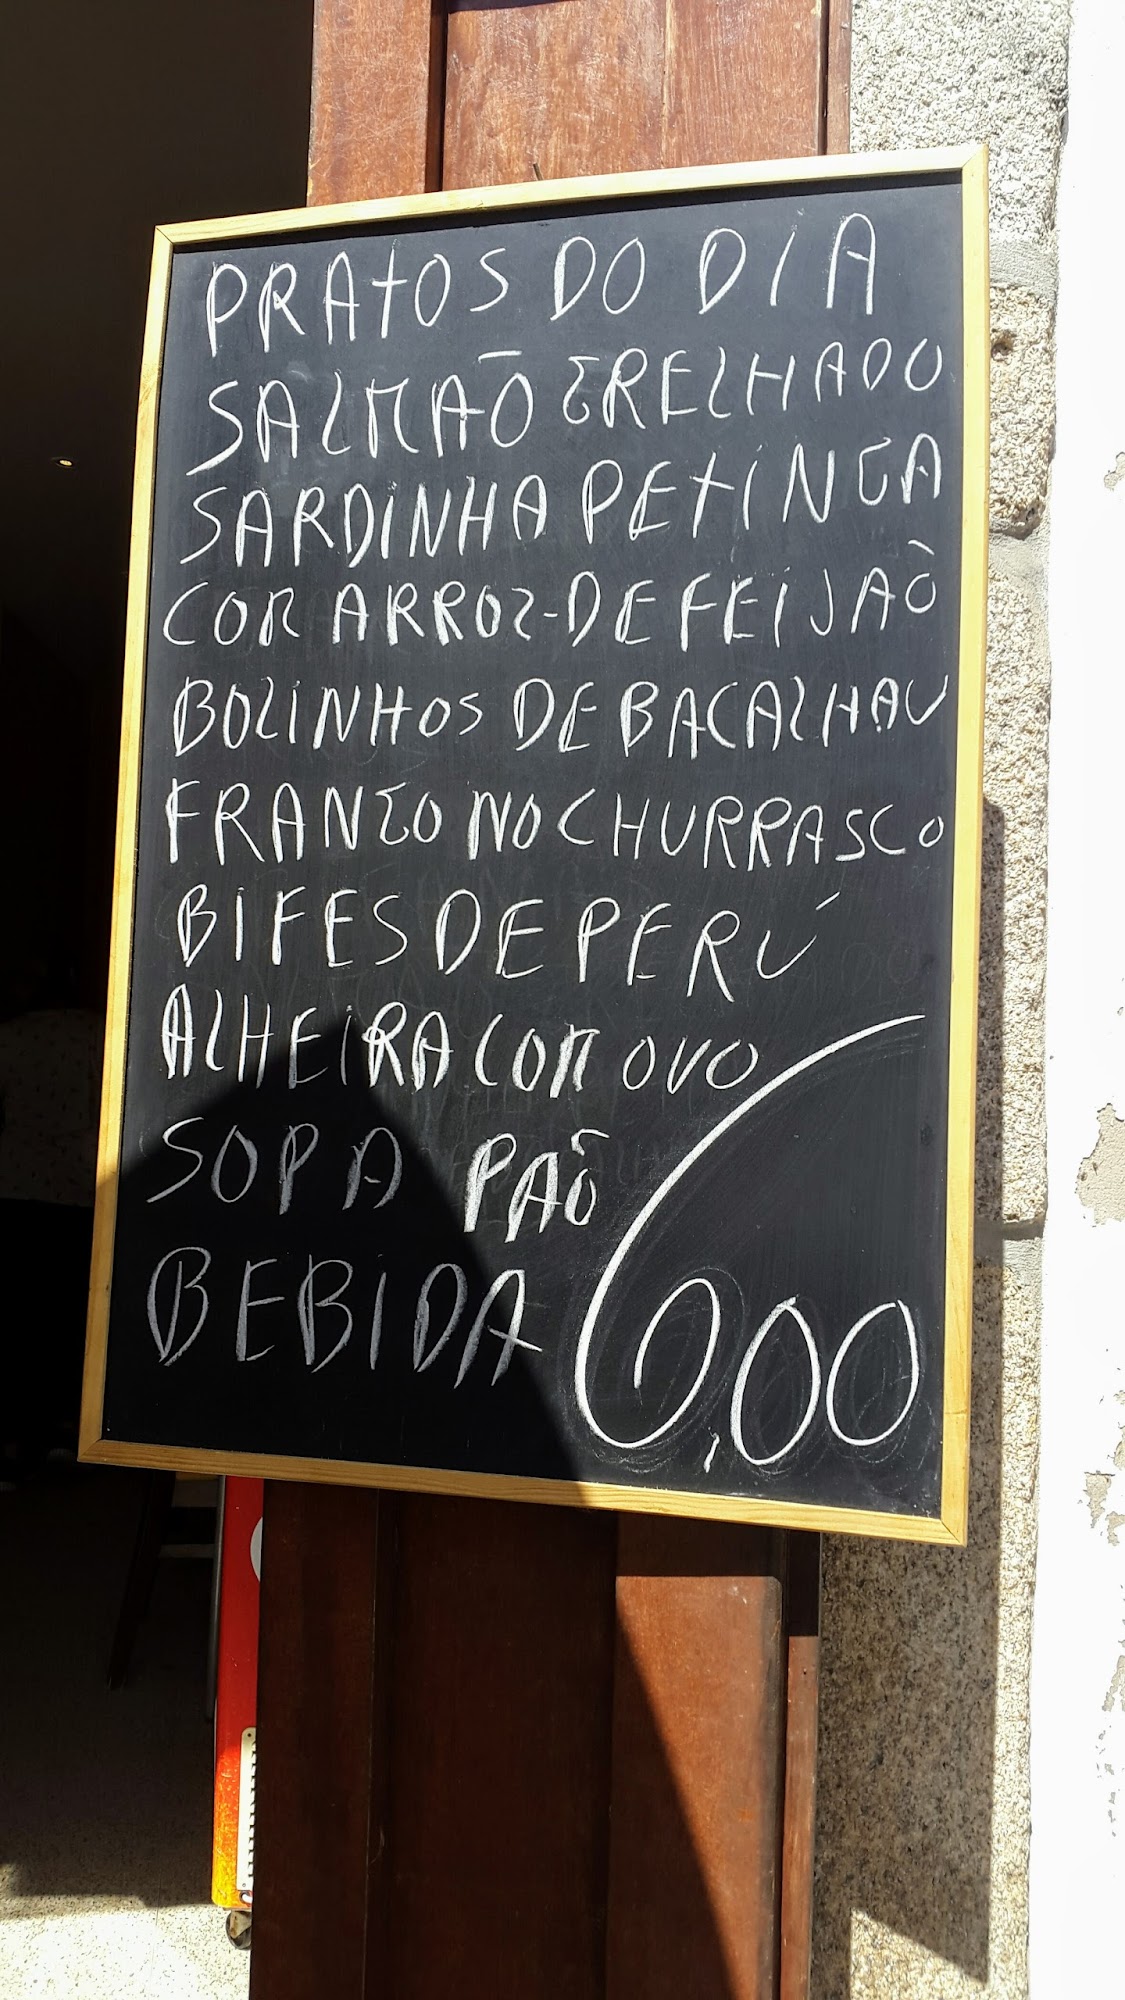 PRATOS DO DIA
SALMAÕ GRELHADO
SARDINHA PETINGA
COM ARROZ-DE FEIJAÕ
BOLINHOS DE BACALHAU
FRANGO NO CHURRASCO
BIFES DE PERÚ
ALHEIRA COM OVO
SOPA PAÕ
BEBIDA 6,00